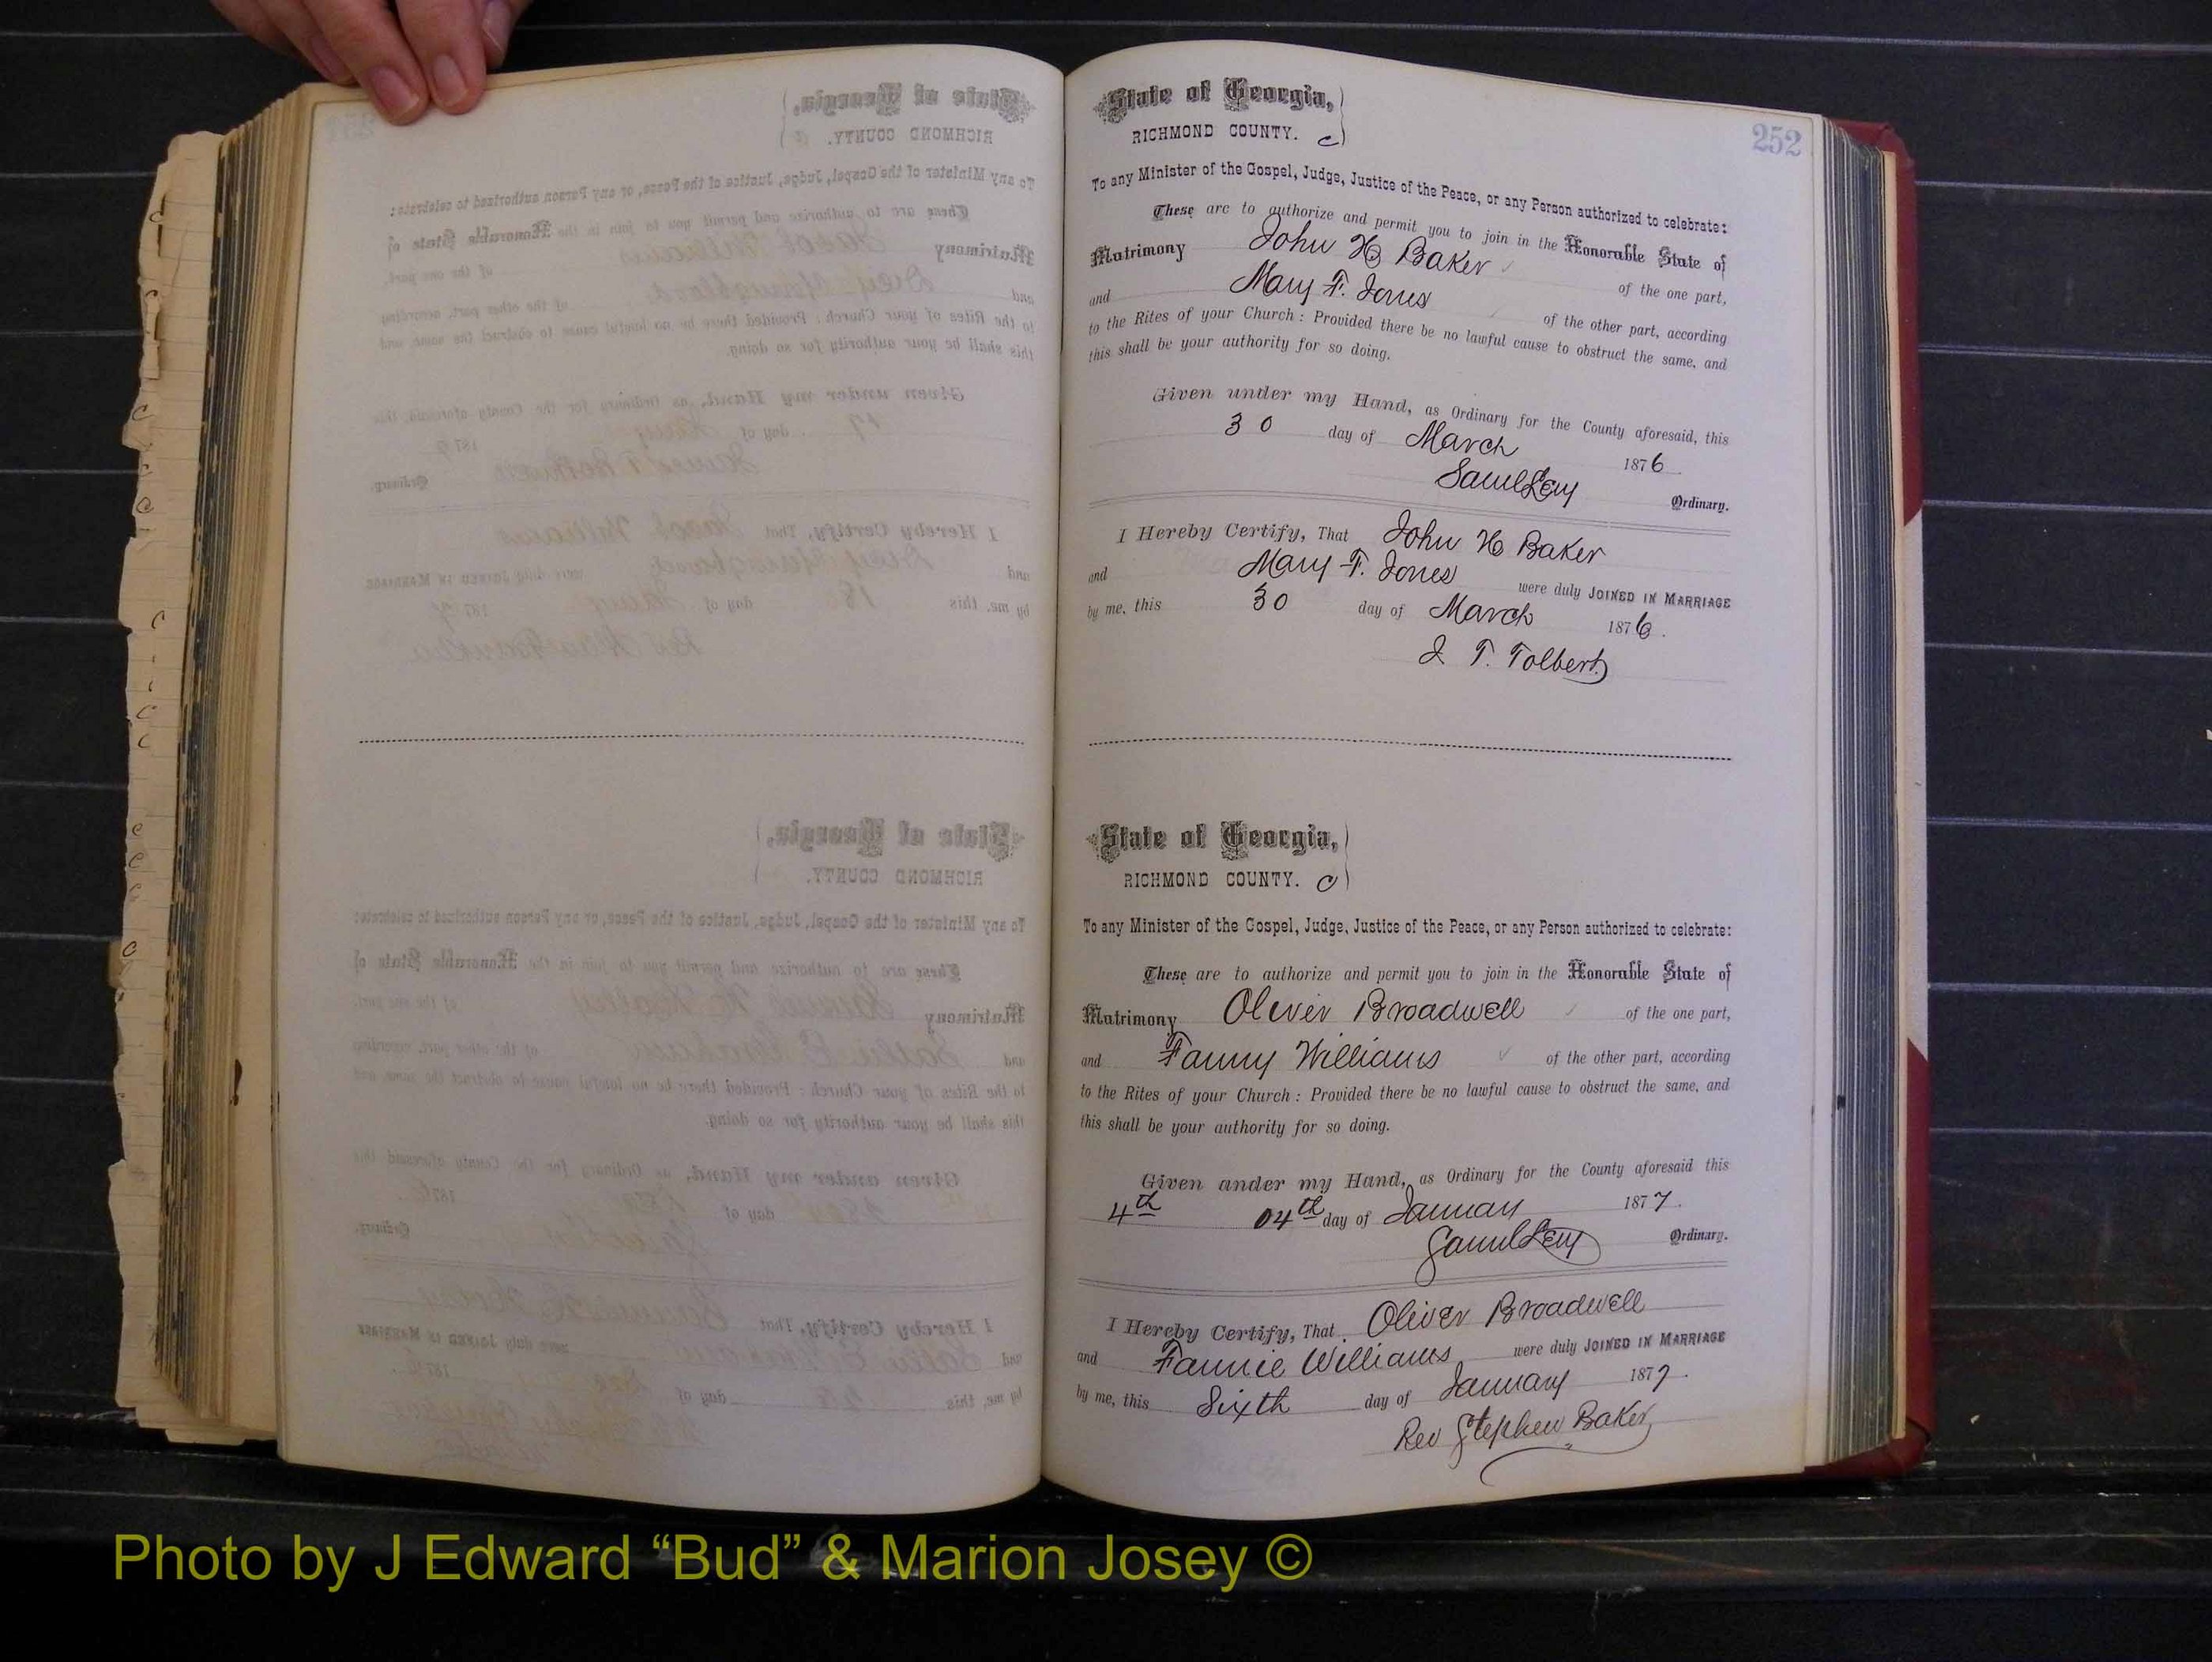 252
State of Georgia,
RICHMOND COUNTY. C
To any Minister of the Gospel, Judge, Justice of the Peace, or any Person authorized to celebrate:
These are to authorize and permit you to join in the Honorable State of
Matrimony John H Baker of the one part,
and Mary F. Jones of the other part, according
to the Rites of your Church: Provided there be no lawful cause to obstruct the same, and
this shall be your authority for so doing.
Given under my Hand, as Ordinary for the County aforesaid, this
30 day of March 1876
Saml Levy Ordinary.
I Hereby Certify, That John H Baker
and Mary F. Jones were duly JOINED IN MARRIAGE
by me, this 30 day of March 1876.
J. T. Tolbert
State of Georgia,
RICHMOND COUNTY. C
To any Minister of the Gospel, Judge, Justice of the Peace, or any Person authorized to celebrate:
These are to authorize and permit you to join in the Honorable State of
Matrimony Oliver Broadwell of the one part,
and Fanny Williams of the other part, according
to the Rites of your Church: Provided there be no lawful cause to obstruct the same, and
this shall be your authority for so doing.
Given under my Hand, as Ordinary for the County aforesaid this
4th 04th day of January 1877.
Saml Levy Ordinary.
I Hereby Certify, That Oliver Broadwell
and Fannie Williams were duly JOINED IN MARRIAGE
by me, this Sixth day of January 1877.
Rev Stephen Baker
Photo by J Edward “Bud” & Marion Josey ©